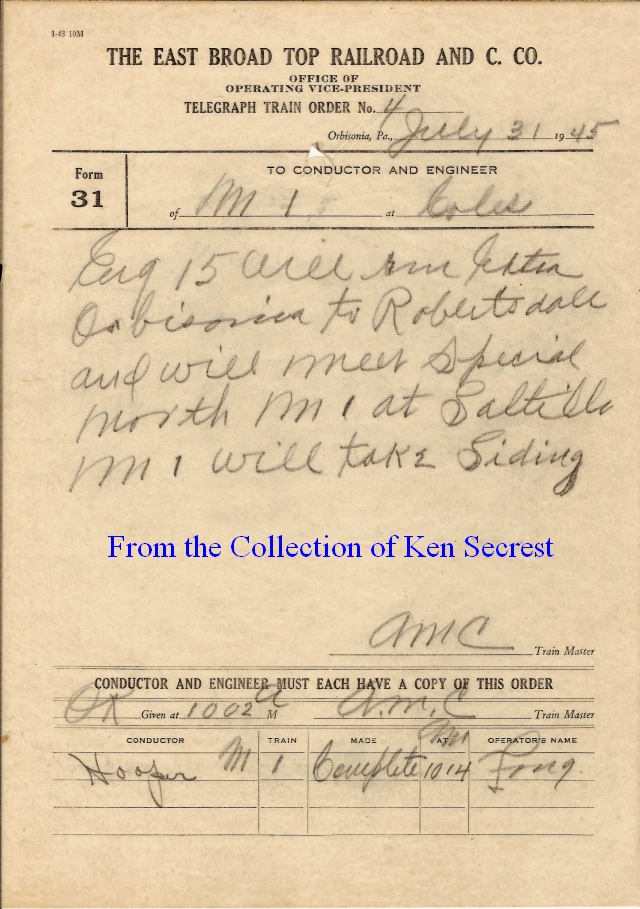 1-43 10M
THE EAST BROAD TOP RAILROAD AND C. CO.
OFFICE OF
OPERATING VICE-PRESIDENT
TELEGRAPH TRAIN ORDER No. 4
Orbisonia, Pa., July 31 1945
Form
31
TO CONDUCTOR AND ENGINEER
of M 1 at Coles
Eng 15 will run Extra
Orbisonia to Robertsdale
and will meet Special
north M 1 at Saltillo
M 1 will take Siding
From the Collection of Ken Secrest
AMC Train Master
CONDUCTOR AND ENGINEER MUST EACH HAVE A COPY OF THIS ORDER
OK Given at 1002 A M A.M.C Train Master
CONDUCTOR TRAIN MADE AT OPERATOR'S NAME
Hooper M 1 Complete 1014 AM Fong